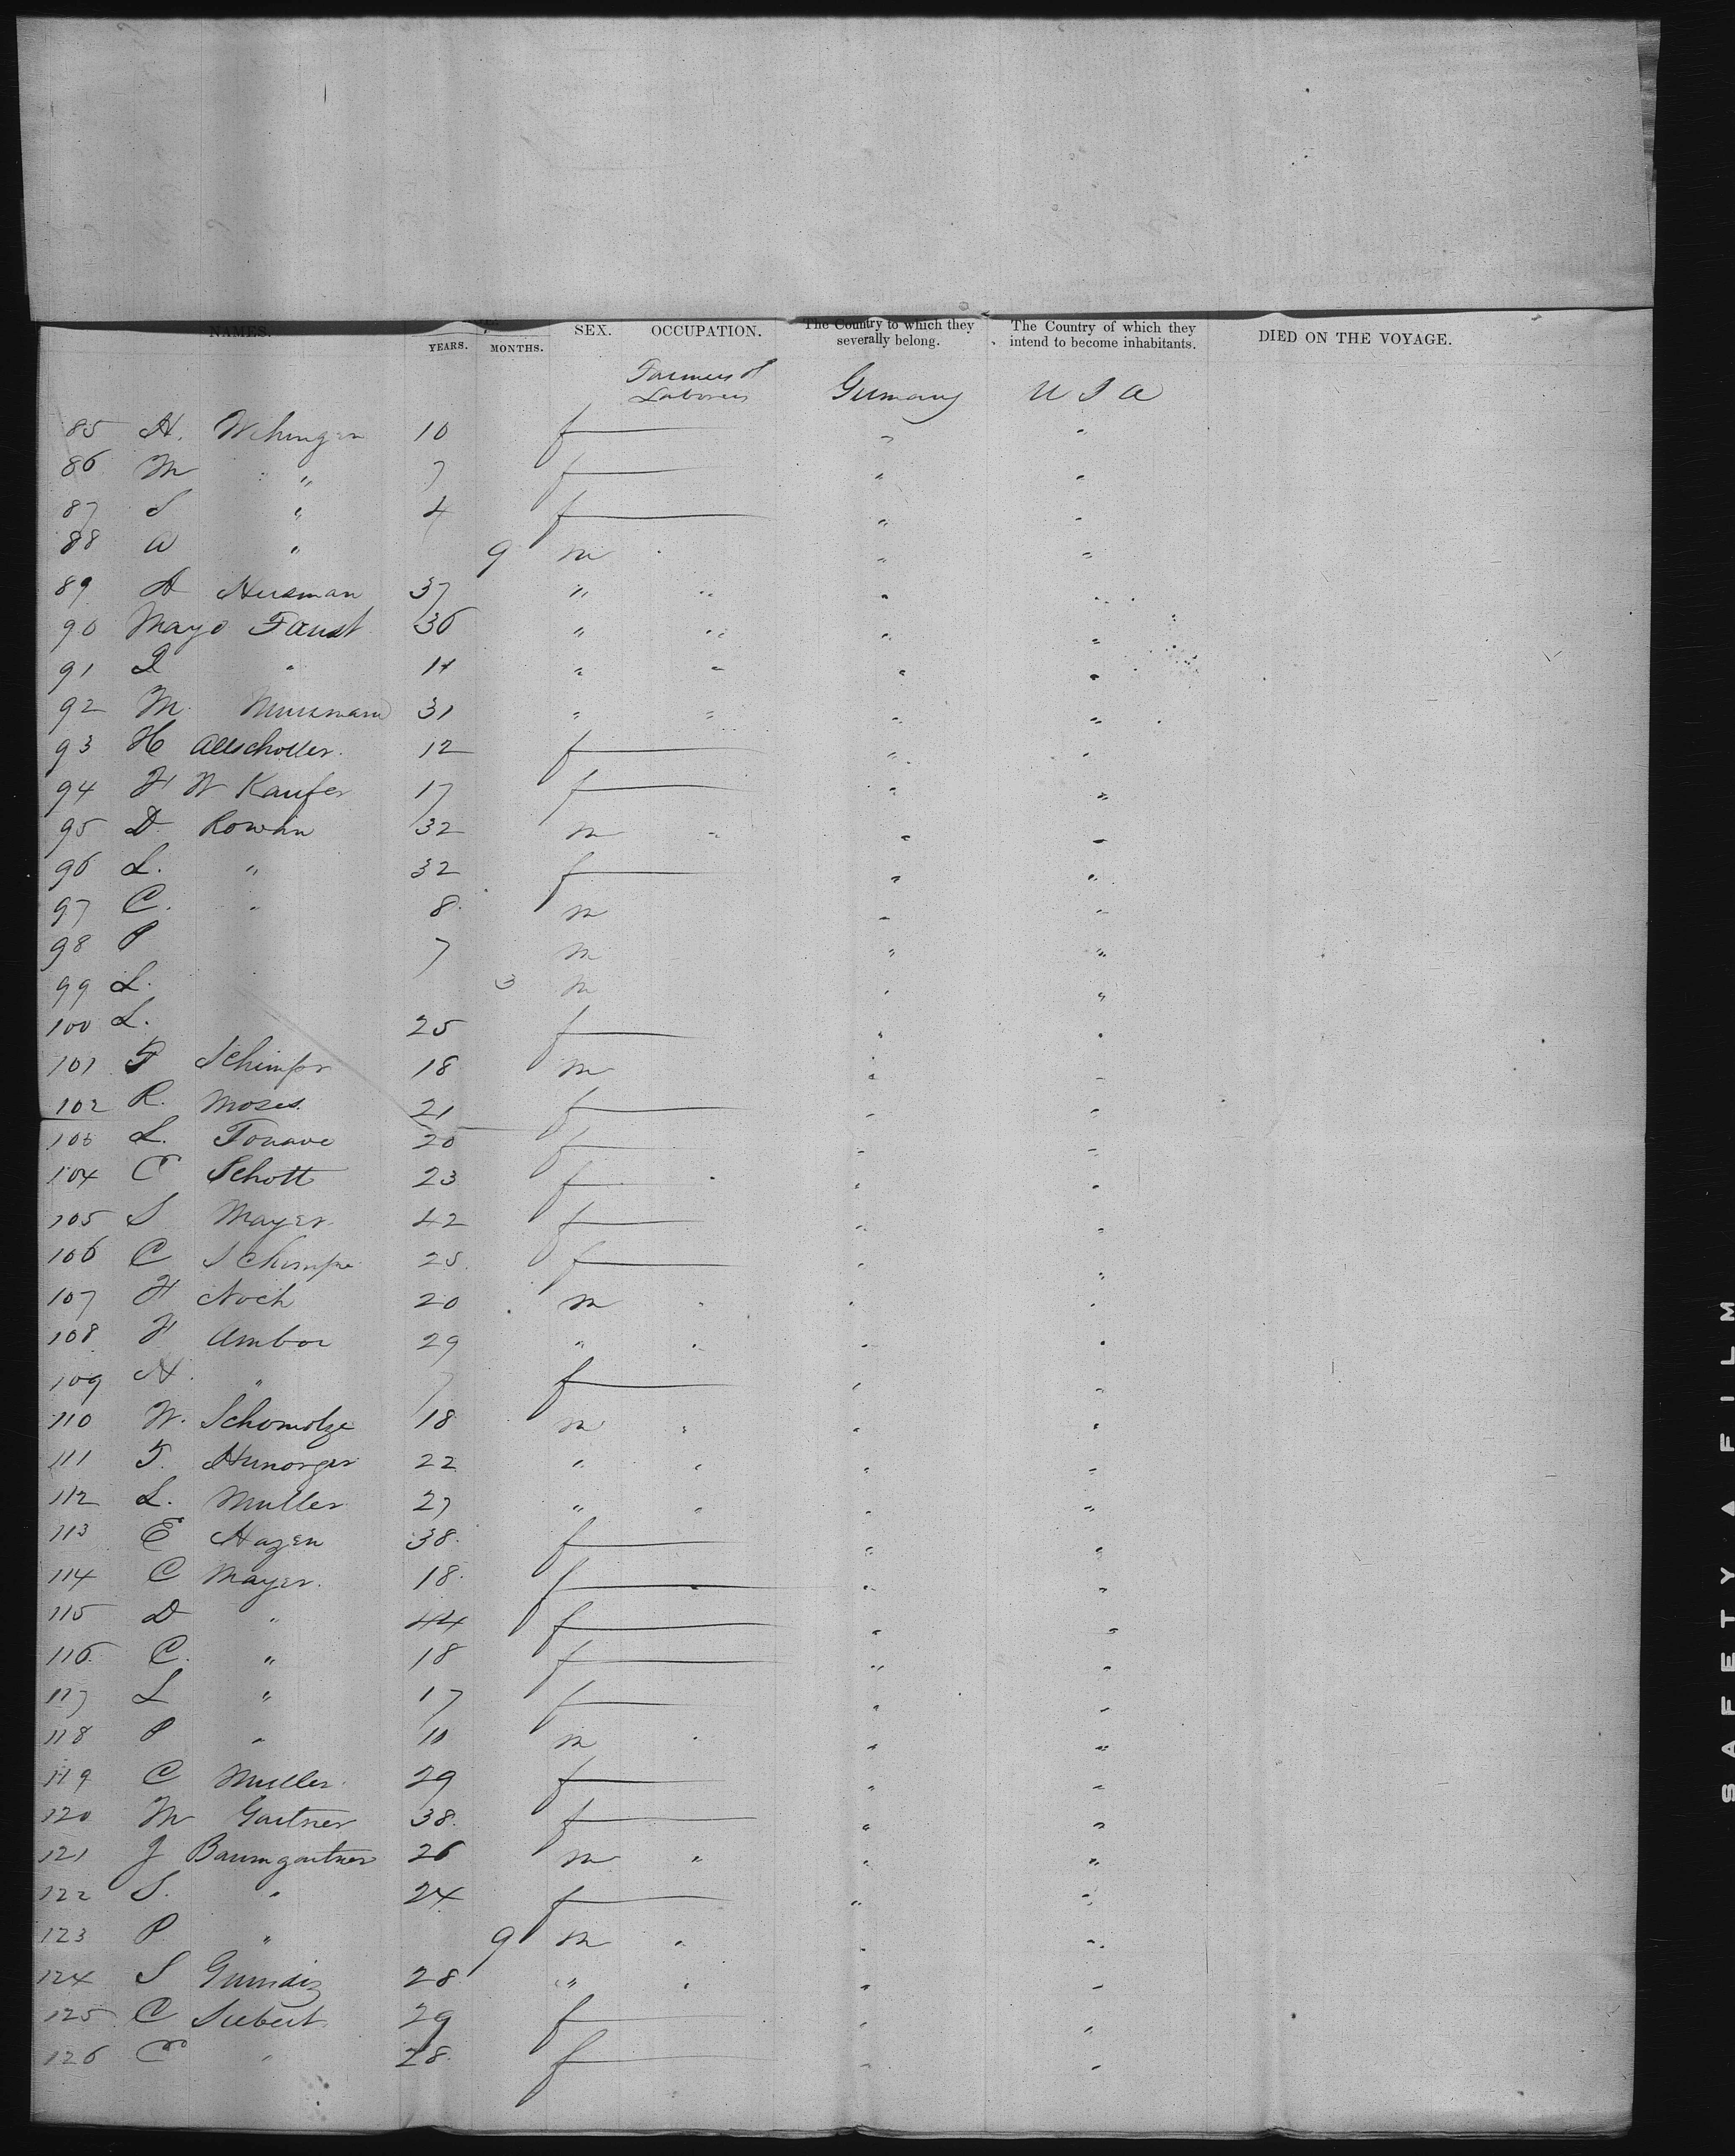 NAMES. YEARS. MONTHS. SEX. OCCUPATION. The Country to which they severally belong. The Country of which they intend to become inhabitants. DIED ON THE VOYAGE.
Farmers & Laborers Germany U S A
85 H. Wehinger 10 f " "
86 M " 7 f " "
87 S " 4 f " "
88 W " 9 m " "
89 A Heisman 37 " " " "
90 Mayo Faust 36 " " " "
91 " 11 " " " "
92 M. 31 " " " "
93 H Allscholler. 12 f " "
94 F W Kaufer 17 f " "
95 D. Rowan 32 m " " "
96 L. " 32 f " "
97 C. " 8 m " "
98 P 7 m " "
99 L. 3 m " "
100 L. 25 f " "
101 F Schimpr 18 m " "
102 R. Moses. 21 f " "
103 L. Tonave 20 f " "
104 C Schott 23 f " "
105 S Mayer 42 f " "
106 C Schimpe 25 f " "
107 F Noch 20 m " " "
108 F Ambor 29 " " " "
109 N. " 7 f " "
110 W. Schomolze 18 m " " "
111 F. Hunorger 22 " " " "
112 L. Muller 27 " " " "
113 E Hagen 38. f " "
114 C Mayer. 18. f " "
115 D " 44 f " "
116 C. " 18 f " "
117 L " 17 f " "
118 P " 10 m " " "
119 C Muller. 29 f " "
120 M Gartner 38. f " "
121 J Baumgartner 26 m " " "
122 S. " 24 f " "
123 P " 9 m " " "
124 S 28 " " " "
125 C Siebert 29 f " "
126 C " 28. f " "
SAFETY A FILM